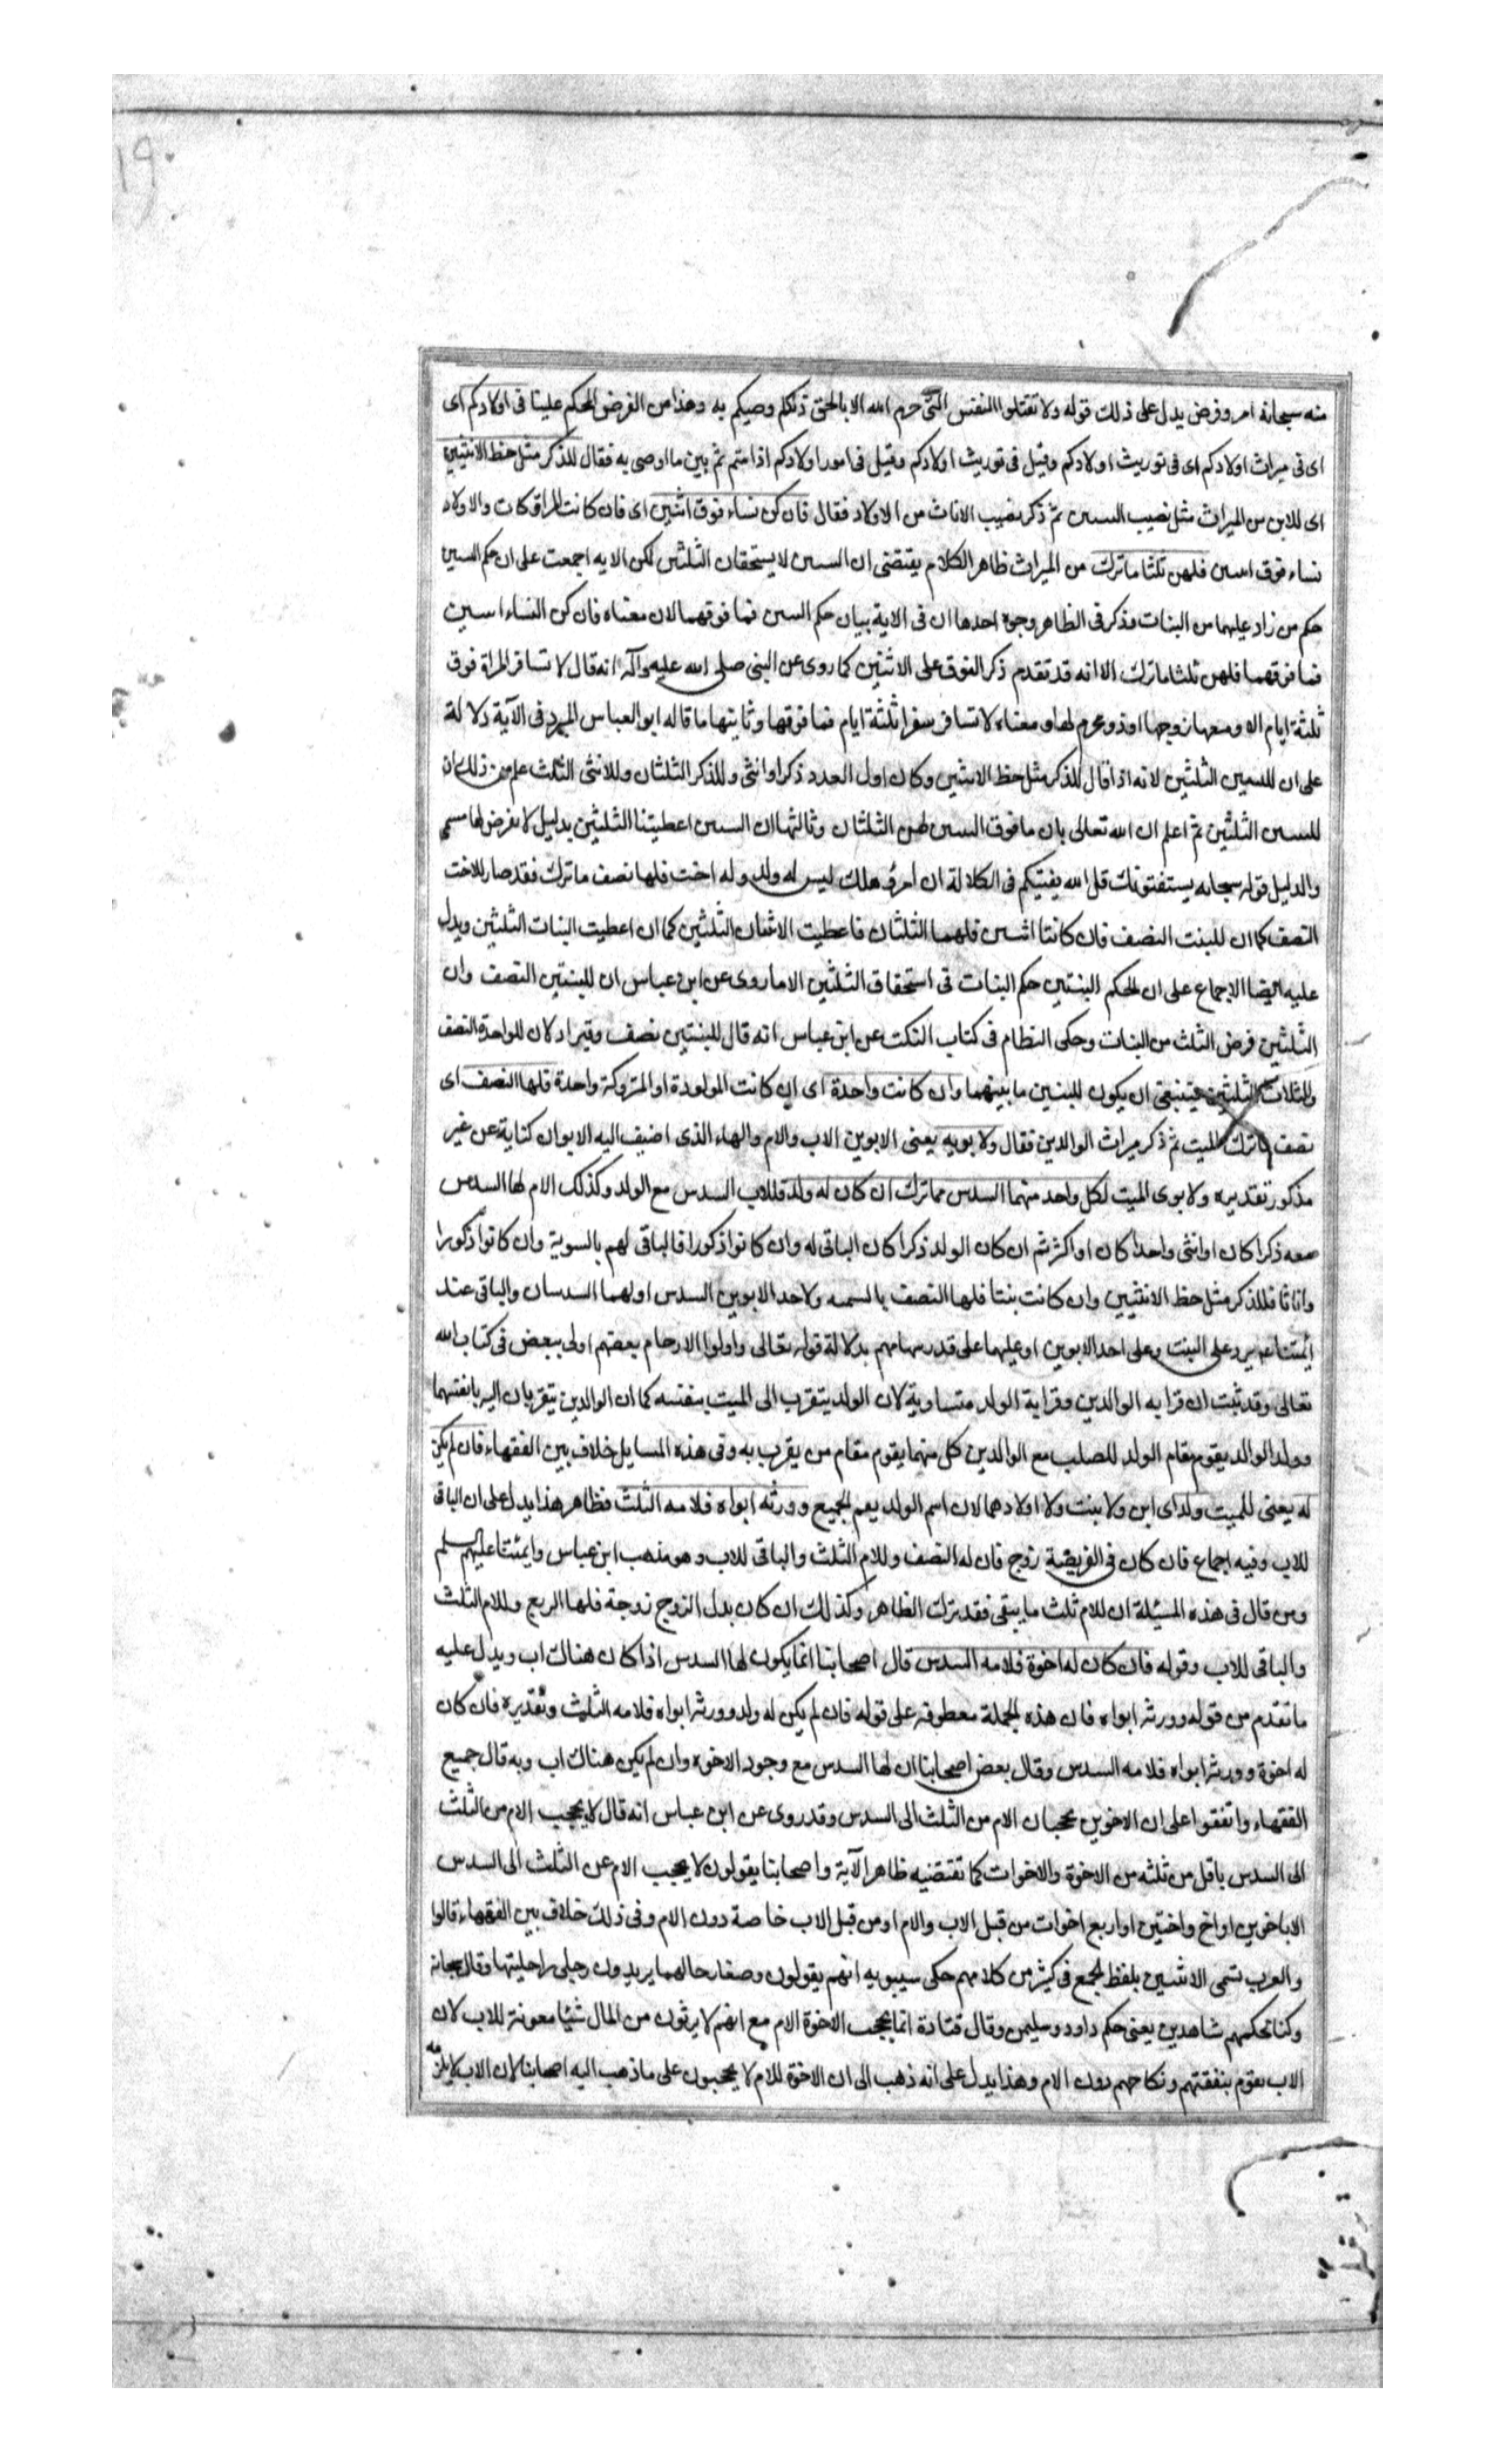 منه سبحانه امر وفرض يدل على ذلك قوله ولا تقتلوا النفس التى حرم الله الا بالحق ذلكم وصيكم به وهذا من الفرض المحكم علينا فى اولادكم اى
اى فى ميراث اولادكم اى فى توريث اولادكم وقيل فى توريث اولادكم وقيل فى امور اولادكم اذا متم ثم بين ما اوصى به فقال للذكر مثل حظ الانثيين
اى للابن من الميراث مثل نصيب البنتين ثم ذكر نصيب الاناث من الاولاد فقال فان كن نساء فوق اثنتين اى فان كانت المتروكات والاولاد
نساء فوق اثنتين فلهن ثلثا ما ترك من الميراث ظاهر الكلام يقتضى ان البنتين لا يستحقان الثلثين لكن الايه اجمعت على ان حكم البنتين
حكم من زاد عليهما من البنات فذكر فى الظاهر وجوه احدها ان فى الاية بيان حكم البنتين فما فوقهما لان معناه فان كن النساء اثنتين
فما فوقهما فلهن ثلثا ما ترك الا انه قد تقدم ذكر الفوق على الاثنتين كما روى عن النبى صلى الله عليه وآله انه قال لا تسافر المراة فوق
ثلثة ايام الا ومعها زوجها او ذو محرم لها ومعناه لا تسافر سفرا ثلثة ايام فما فوقها وثانيها ما قاله ابو العباس المبرد فى الآية دلالة
على ان للبنتين الثلثين لانه اذا قال للذكر مثل حظ الانثيين وكان اول العدد ذكرا وانثى وللذكر الثلثان وللانثى الثلث علم من ذلك ان
للبنتين الثلثين ثم اعلم ان الله تعالى بان ما فوق البنتين لهن الثلثان وثالثها ان البنتين اعطيتا الثلثين بدليل لا نفرض لها مسمى
والدليل قوله سبحانه يستفتونك قل الله يفتيكم فى الكلالة ان امرؤ هلك ليس له ولد وله اخت فلها نصف ما ترك فقد صار للاخت
النصف كما ان للبنت النصف فان كانتا اثنتين فلهما الثلثان فاعطيت الاثنتان الثلثين كما ان اعطيت البنات الثلثين ويدل
عليه ايضا الاجماع على ان الحكم البنتين حكم البنات فى استحقاق الثلثين الا ما روى عن ابن عباس ان للبنتين النصف وان
الثلثين فرض الثلث من البنات وحكى النظام فى كتاب النكت عن ابن عباس انه قال للبنتين نصف وقيراد لان للواحدة النصف
وللثلاث الثلثين فينبغى ان يكون للبنتين ما بينهما وان كانت واحدة اى ان كانت المولودة او المتروكة واحدة فلها النصف اى
نصف ما ترك الميت ثم ذكر ميراث الوالدين فقال ولابويه يعنى الابوين الاب والام والهاء الذى اضيف اليه الابوان كناية عن غير
مذكور تقديره ولابوى الميت لكل واحد منهما السدس مما ترك ان كان له ولد فللاب السدس مع الولد وكذلك الام لها السدس
معه ذكرا كان او انثى واحدا كان او اكثر ثم ان كان الولد ذكرا كان الباقى له وان كانوا ذكورا فالباقى لهم بالسوية وان كانوا ذكورا
واناثا فللذكر مثل حظ الانثيين وان كانت بنتا فلها النصف بالتسميه ولاحد الابوين السدس او لهما السدسان والباقى عند
ائمتنا يرد على البنت وعلى احد الابوين او عليهما على قدر سهامهم بدلالة قوله تعالى واولوا الارحام بعضهم اولى ببعض فى كتاب الله
تعالى وقد ثبت ان قرابه الوالدين وقرابة الولد متساوية لان الولد يتقرب الى الميت بنفسه كما ان الوالدين يتقربان اليه بانفسهما
وولد الوالد يقوم مقام الولد للصلب مع الوالدين كل منهما يقوم مقام من يقرب به وفى هذه المسايل خلاف بين الفقهاء فان لم يكن
له يعنى للميت ولد اى ابن ولا بنت ولا اولادهما لان اسم الولد يعم الجميع وورثه ابواه فلامه الثلث فظاهر هذا يدل على ان الباقى
للاب وفيه اجماع فان كان فى الفريضة زوج فان له النصف وللام الثلث والباقى للاب وهو مذهب ابن عباس وايمتنا عليهم السلم
ومن قال فى هذه المسئلة ان للام ثلث ما يبقى فقد ترك الظاهر وكذلك ان كان بدل الزوج زوجة فلها الربع وللام الثلث
والباقى للاب وقوله فان كان له اخوة فلامه السدس قال اصحابنا انما يكون لها السدس اذا كان هناك اب ويدل عليه
ما تقدم من قوله وورثه ابواه فان هذه الجملة معطوفه على قوله فان لم يكن له ولد وورثه ابواه فلامه الثلث وتقديره فان كان
له اخوة وورثه ابواه فلامه السدس وقال بعض اصحابنا ان لها السدس مع وجود الاخوه وان لم يكن هناك اب وبه قال جميع
الفقهاء واتفقوا على ان الاخوين يحجبان الام من الثلث الى السدس وقد روى عن ابن عباس انه قال لا يحجب الام من الثلث
الى السدس باقل من ثلثه من الاخوة والاخوات كما تقتضيه ظاهر الآية واصحابنا يقولون لا يحجب الام عن الثلث الى السدس
الا باخوين او اخ واختين او اربع اخوات من قبل الاب والام او من قبل الاب خاصة دون الام وفى ذلك خلاف بين الفقهاء قالوا
والعرب تسمى الاثنين بلفظ الجمع فى كثير من كلامهم حكى سيبويه انهم يقولون وضعا رحالهما يريدون رحلى راحلتيهما وقال سبحانه
وكنا لحكمهم شاهدين يعنى حكم داود وسليمن وقال قتادة انما يحجب الاخوة الام مع انهم لا يرثون من المال شيئا معونة للاب لان
الاب يقوم بنفقتهم ونكاحهم دون الام وهذا يدل على انه ذهب الى ان الاخوة للام لا يحجبون على ما ذهب اليه اصحابنا لان الاب لا يلزمه